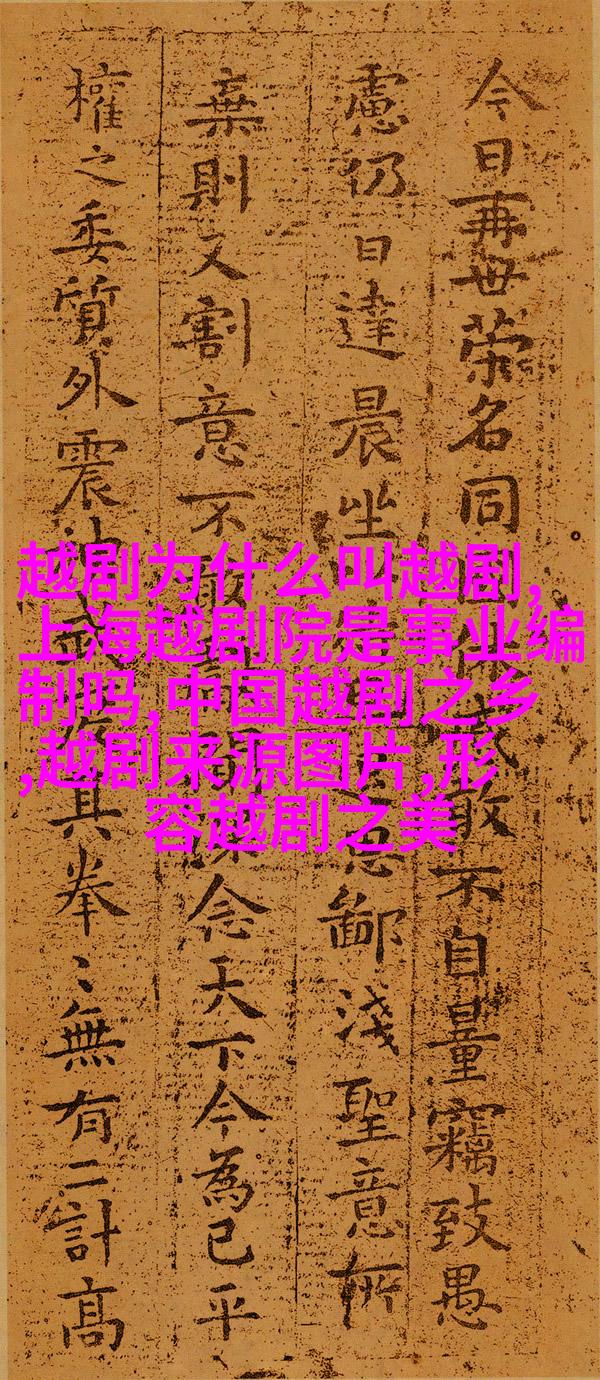 今日再世荣名同休戚敢不自量竊致愚
慮仍日達晨坐思鄙淺聖意所
棄則又割意不敢念天下今為已平
權之委質外震其拳〻無有二計高
越剧为什么叫越剧,
上海越剧院是事业编
制吗,中国越剧之乡
,越剧来源图片,形
容越剧之美